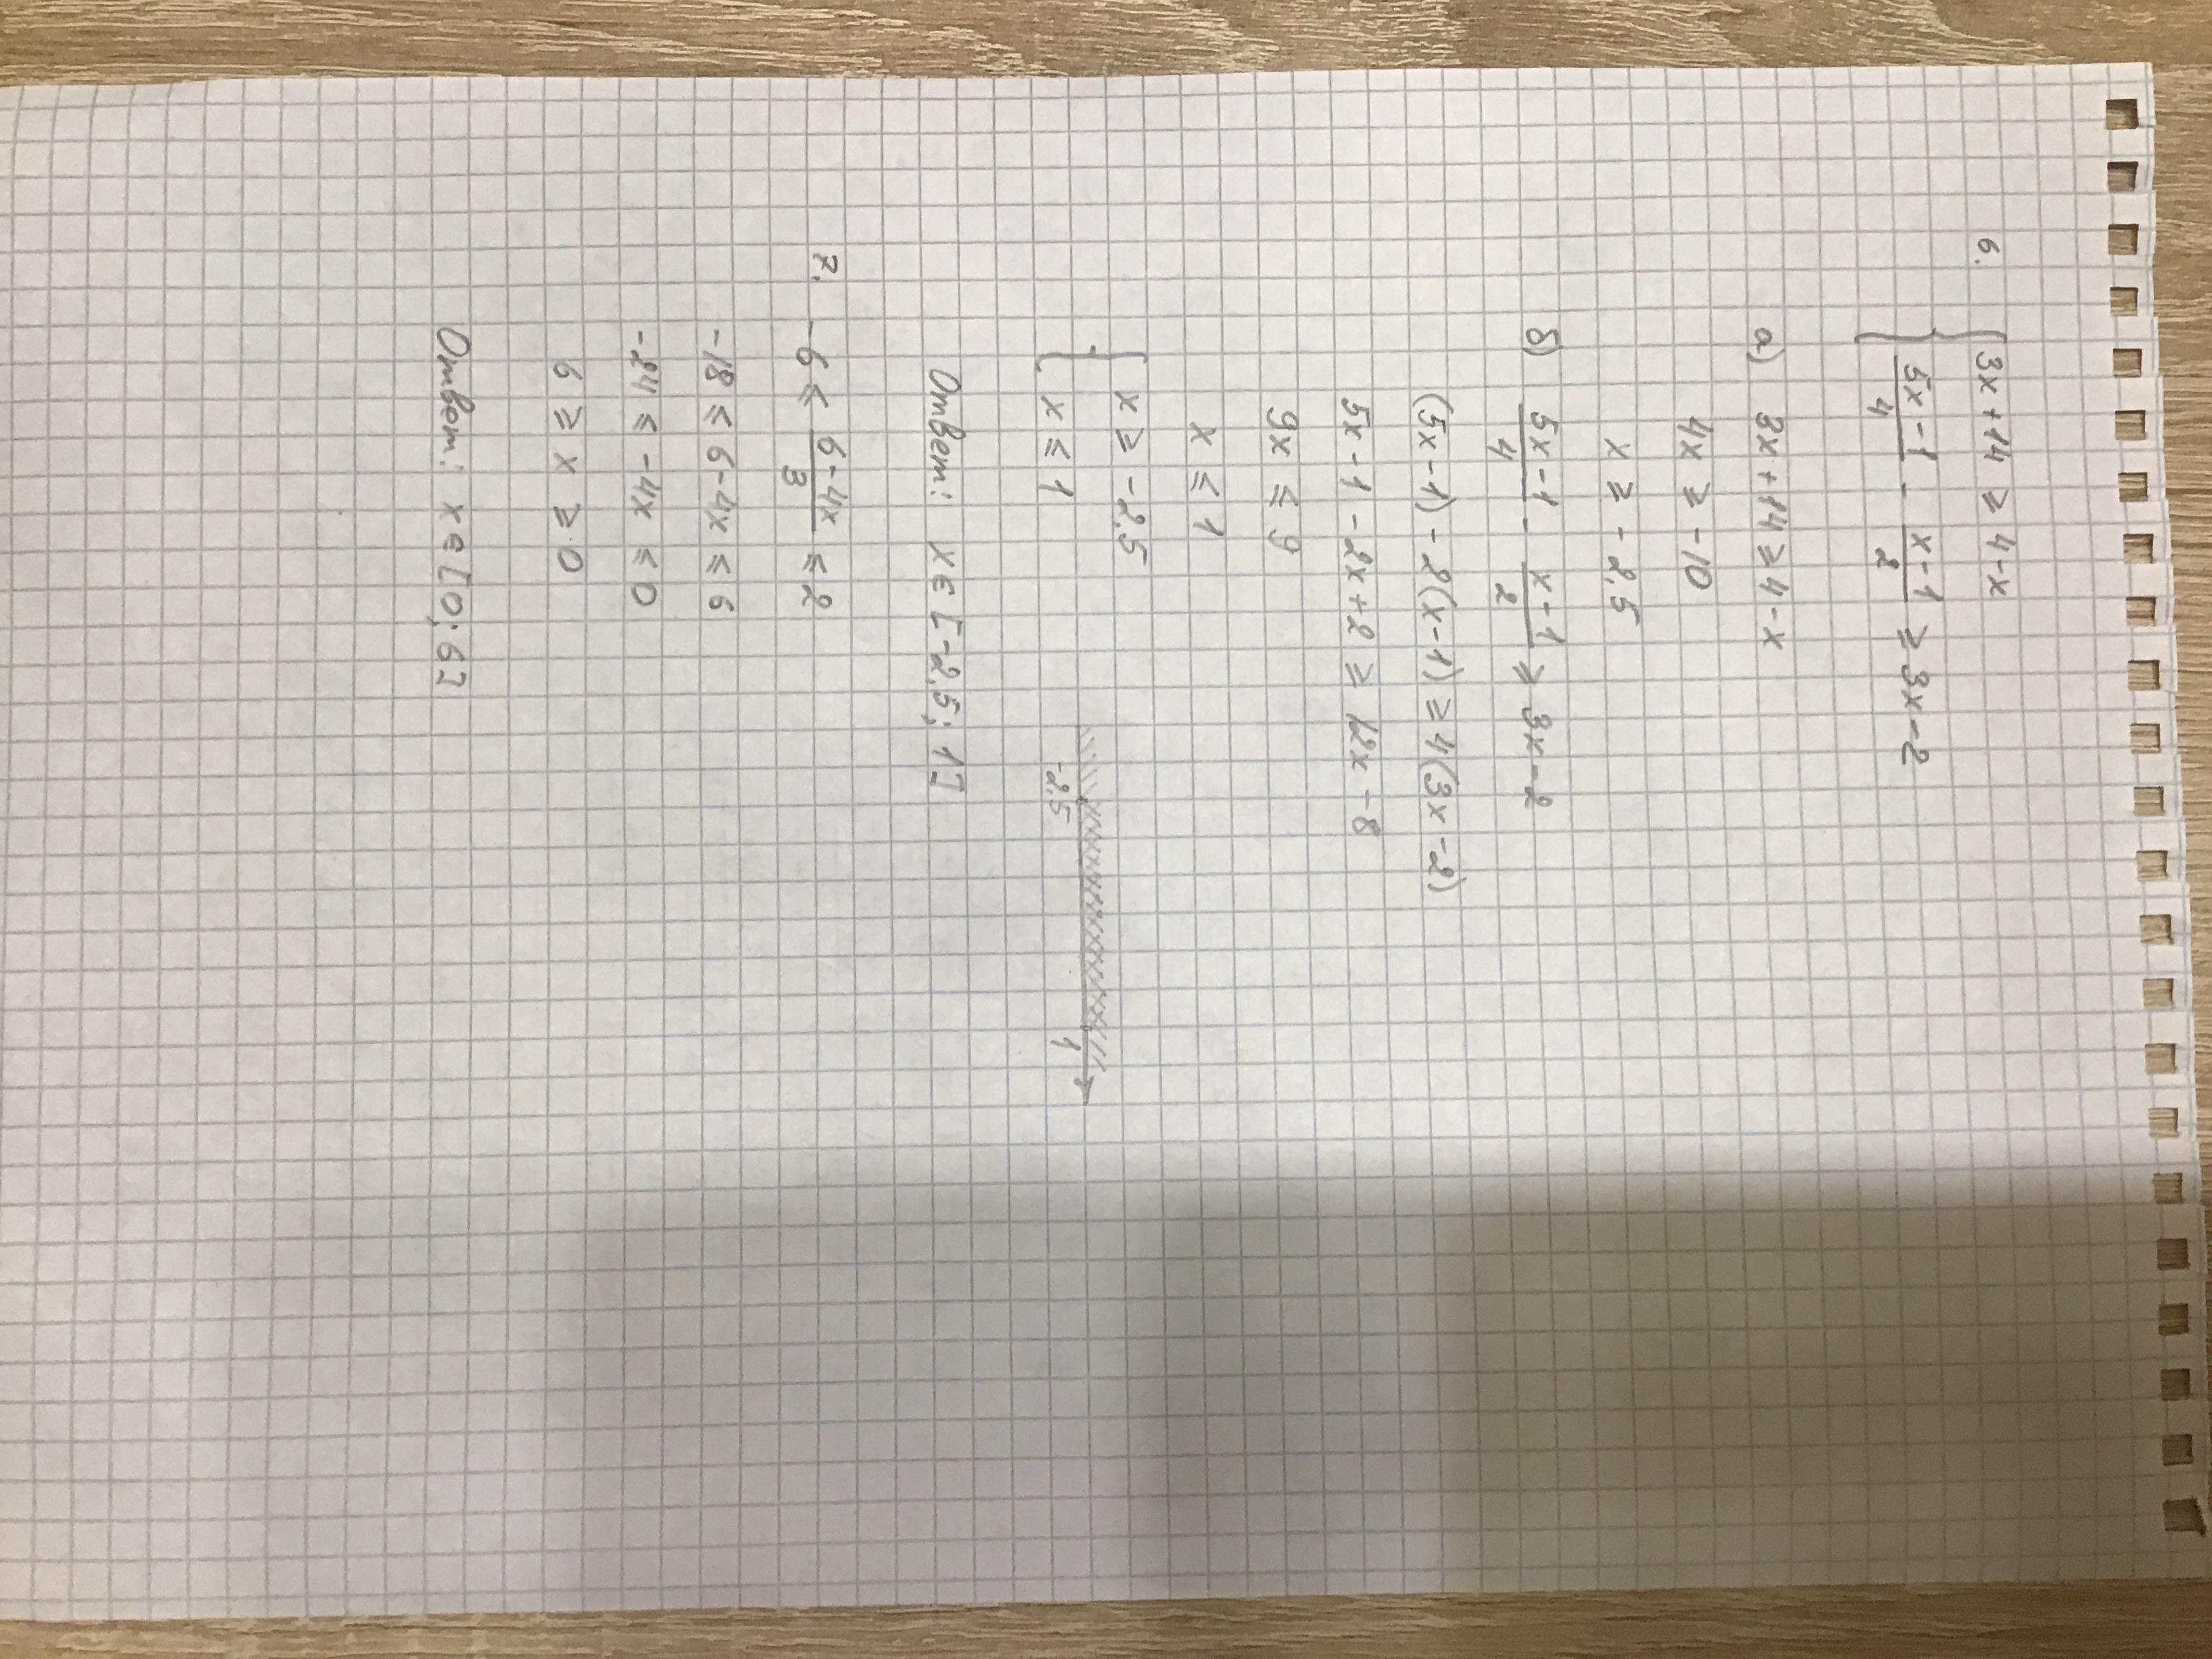 6. { 3x+14 ≥ 4-x
{ (5x-1)/4 - (x-1)/2 ≥ 3x-2
а) 3x+14 ≥ 4-x
4x ≥ -10
x ≥ -2,5
б) (5x-1)/4 - (x-1)/2 ≥ 3x-2
(5x-1) - 2(x-1) ≥ 4(3x-2)
5x-1-2x+2 ≥ 12x-8
9x ≤ 9
x ≤ 1
{ x ≥ -2,5
{ x ≤ 1
-2,5 1
Ответ: x ∈ [-2,5; 1]
7. -6 ≤ (6-4x)/3 ≤ 2
-18 ≤ 6-4x ≤ 6
-24 ≤ -4x ≤ 0
6 ≥ x ≥ 0
Ответ: x ∈ [0; 6]